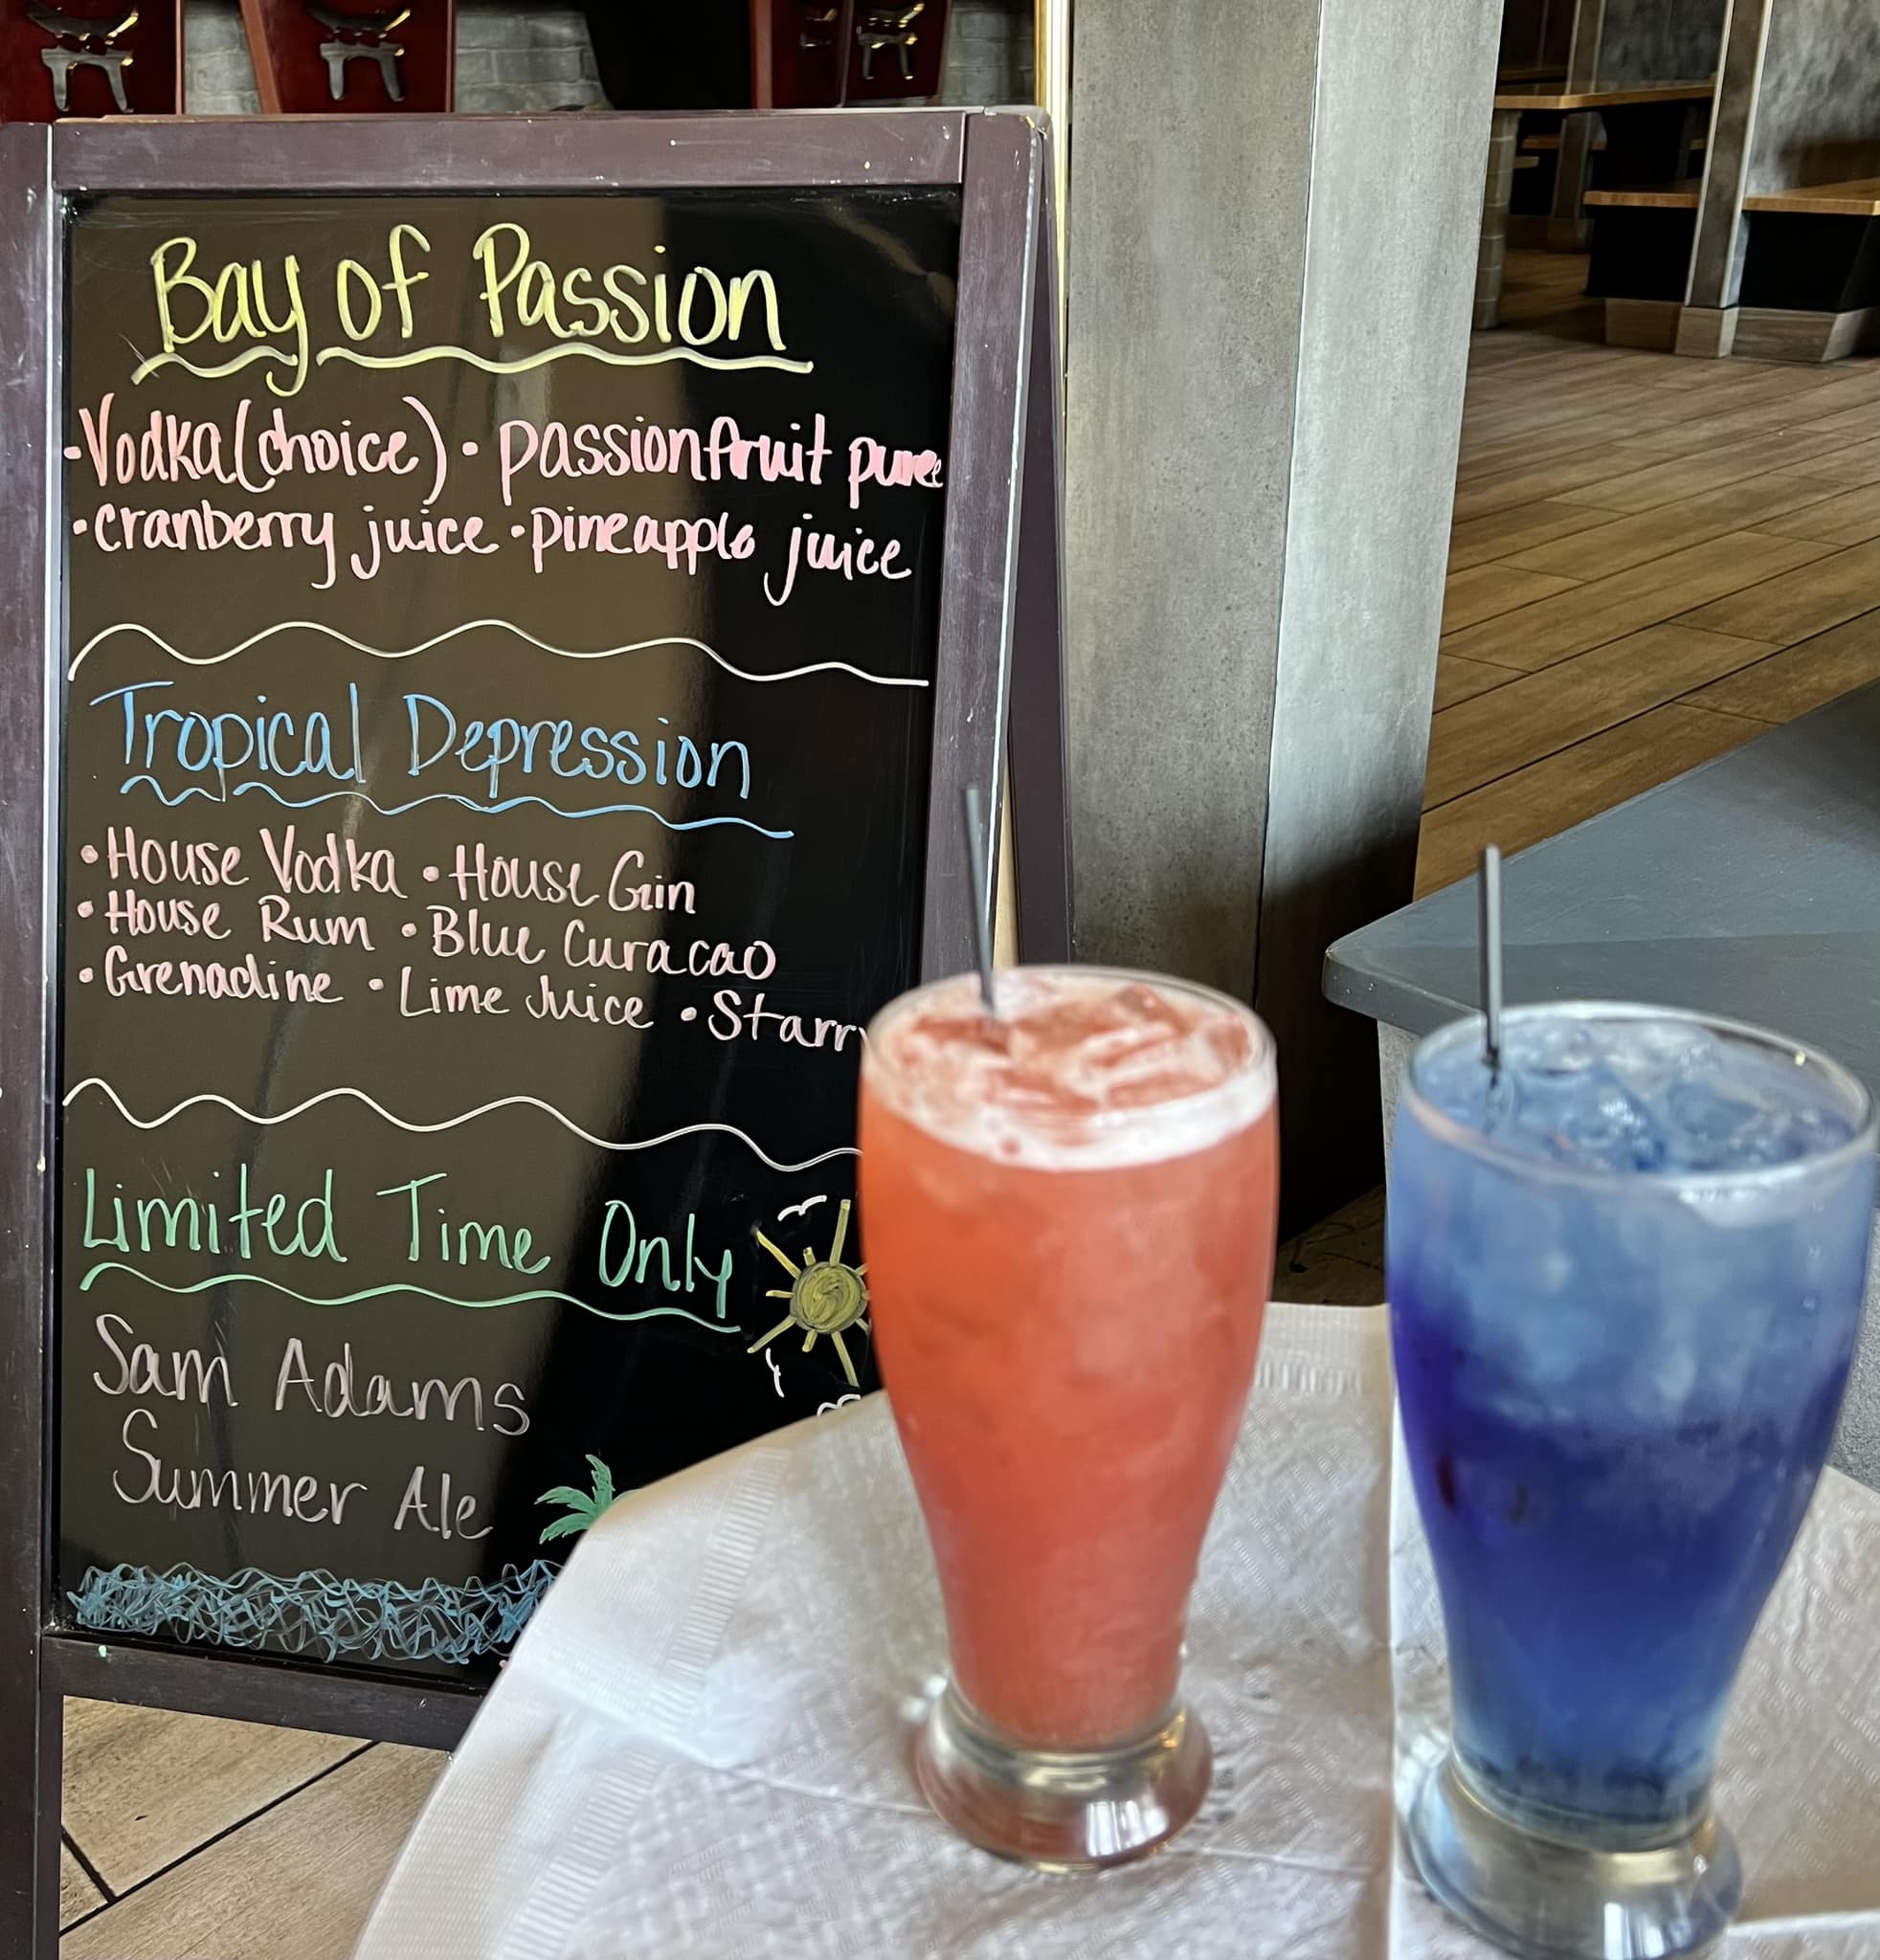 Bay of Passion
·Vodka(choice) · passionfruit puree
·cranberry juice ·pineapple juice
Tropical Depression
·House Vodka ·House Gin
·House Rum ·Blue Curacao
·Grenadine ·Lime Juice ·Starry
Limited Time Only
Sam Adams
Summer Ale